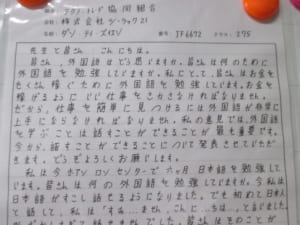 協同組合
株式会社 ジ・ラック21
番号 JF6672 クラス 275
先生と皆さん、こんにちは。
皆さん、外国語はどう思いますか。皆さんは何のために
外国語を勉強していますか。私にとって、皆さんはお金を
たくさん稼ぐために外国語を勉強しています。お金を
稼げるようにいい仕事をさがさなければなりません。
だから、仕事を簡単に見つけるには外国語が非常に
上手にならなければなりません。私の意見では、外国語
を学ぶことは話すことができることが最も重要です。
今から、話すことができることについて発表させていただ
きます。どうぞよろしくお願いします。
私は今 ホアン ロン センターで 六ヶ月 日本語を勉強して
います。皆さんは何の外国語を勉強していますか。今私は
日本語がすこし話せるようになりました。でも初めて日本人
と話して、私は「すみ…ません、こんに…ちは…」と言いました。